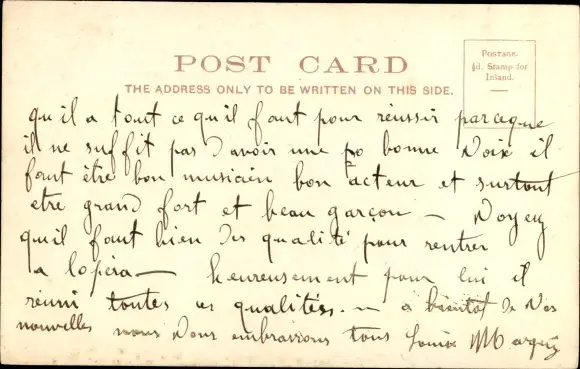 POST CARD
THE ADDRESS ONLY TO BE WRITTEN ON THIS SIDE.
POSTAGE.
½d. Stamp for
Inland.
qu il a tout ce qu il faut pour réussir parceque
il ne suffit pas d avoir une bonne voix il
faut être bon musicien bon acteur et surtout
etre grand fort et beau garçon — Voyez
qu il faut bien des qualité pour rentrer
a lopéra — heureusement pour lui il
réuni toutes ces qualités. — a bientot de vos
nouvelles nous vous embrassons tous Louis